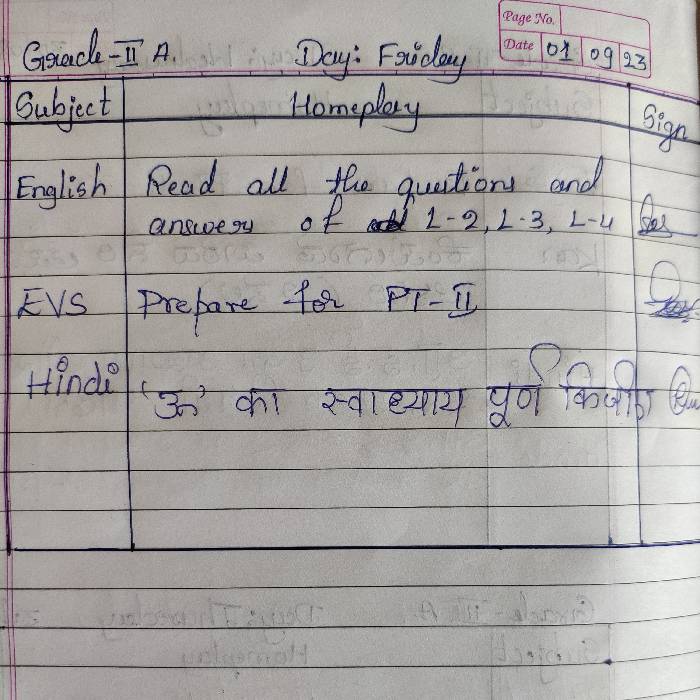 Page No.
Date 01 09 23
Grade-II A. Day: Friday
Subject Homeplay Sign
English Read all the questions and
answers of L-2, L-3, L-4
EVS Prepare for PT-II
Hindi 'ऊ' का स्वाध्याय पूर्ण किजीए